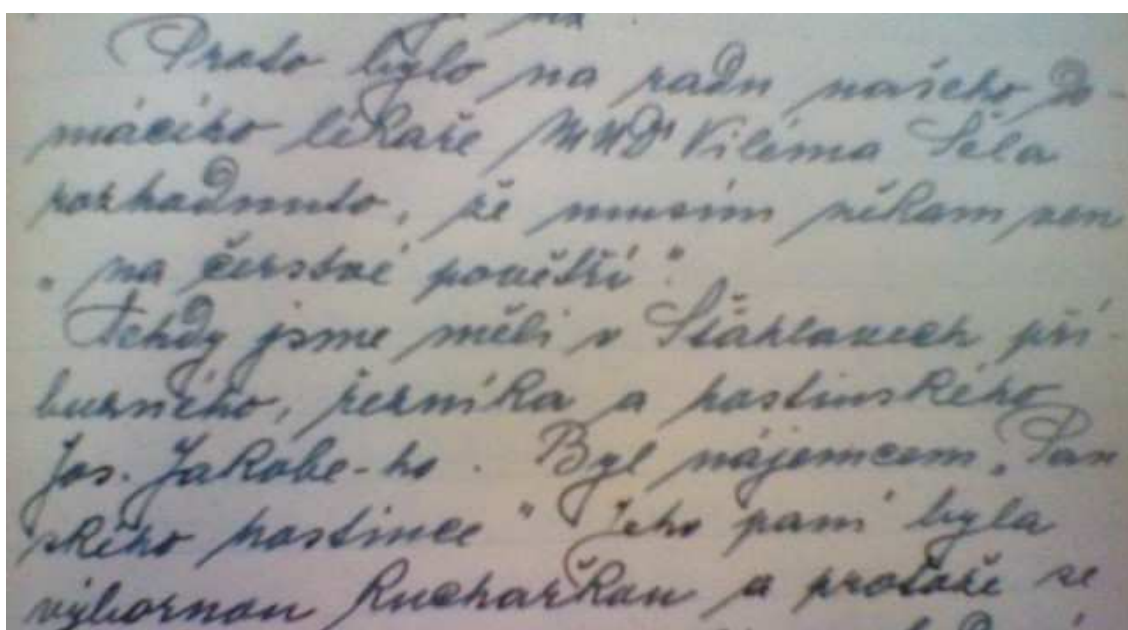 Proto bylo na radu našeho do-
mácího lékaře MUDr Viléma Šéla
rozhodnuto, že musím někam ven
„na čerstvé povětří".
Tehdy jsme měli v Šťáhlavech pří-
buzného, řezníka a hostinského
Jos. Jakobe-ho. Byl nájemcem „Pan
ského hostince" Jeho paní byla
výbornou kuchařkou a protože se